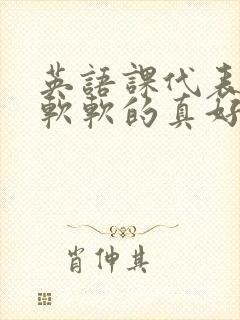 英語課代表
軟軟的真好
肖伸其